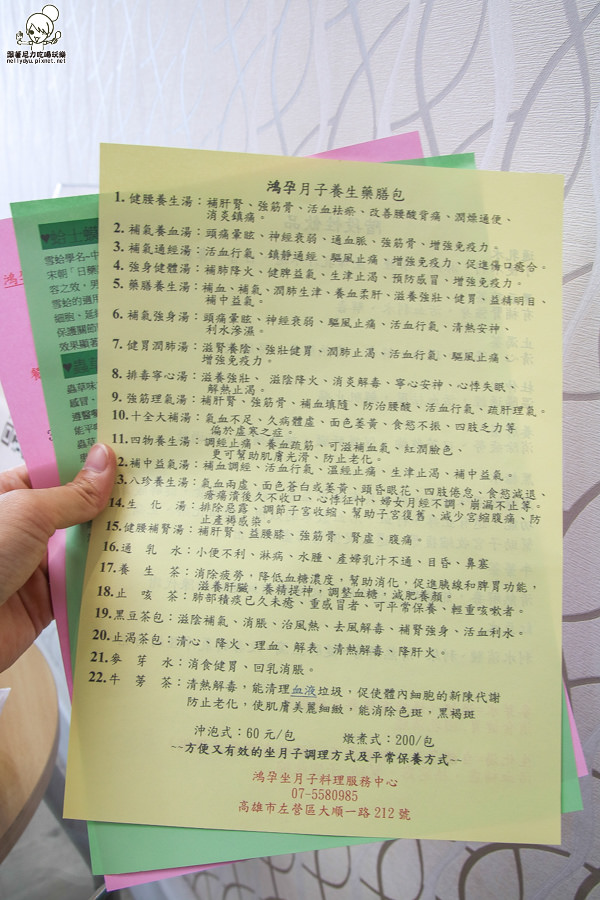 跟著尼力吃喝玩樂
nellydyu.pixnet.net
鴻孕月子養生藥膳包
1. 健腰養生湯：補肝腎、強筋骨、活血祛瘀、改善腰酸背痛、潤燥通便、
消炎鎮痛。
2. 補氣養血湯：頭痛暈眩、神經衰弱、通血脈、強筋骨、增強免疫力。
3. 補氣通經湯：活血行氣、鎮靜通經、驅風止痛、增強免疫力、促進傷口癒合。
4. 強身健體湯：補肺降火、健脾益氣、生津止渴、預防感冒、增強免疫力。
5. 藥膳養生湯：補血、補氣、潤肺生津、養血柔肝、滋養強壯、健胃、益精明目、
補中益氣。
6. 補氣強身湯：頭痛暈眩、神經衰弱、驅風止痛、活血行氣、清熱安神、
利水滲濕。
7. 健胃潤肺湯：滋腎養陰、強壯健胃、潤肺止渴、活血行氣、驅風止痛、
增強免疫力。
8. 排毒寧心湯：滋養強壯、滋陰降火、消炎解毒、寧心安神、心悸失眠、
解熱止渴。
9. 強筋理氣湯：補肝腎、強筋骨、補血填隨、防治腰酸、活血行氣、疏肝理氣。
10. 十全大補湯：氣血不足、久病體虛、面色萎黃、食慾不振、四肢乏力等
偏於虛寒之症。
11. 四物養生湯：調經止痛、養血疏筋、可滋補血氣、紅潤臉色、
更可幫助肌膚光滑、防止老化。
2. 補中益氣湯：補血調經、活血行氣、溫經止痛、生津止渴、補中益氣。
3. 八珍養生湯：氣血兩虛、面色蒼白或萎黃、頭昏眼花、四肢倦怠、食慾減退、
瘡瘍潰後久不收口、心悸怔忡、婦女月經不調、崩漏不止等。
14. 生 化 湯：排除惡露、調節子宮收縮、幫助子宮復舊、減少宮縮腹痛、防
止產褥感染。
15. 健腰補腎湯：補肝腎、益腰膝、強筋骨、腎虛、腹痛。
16. 通 乳 水：小便不利、淋病、水腫、產婦乳汁不通、目昏、鼻塞
17. 養 生 茶：消除疲勞，降低血糖濃度，幫助消化，促進胰線和脾胃功能，
滋養肝臟，養精提神，調整血糖，減肥養顏。
18. 止 咳 茶：肺部積痰已久未癒、重感冒者、可平常保養、輕重咳嗽者。
19. 黑豆茶包：滋陰補氣、消脹、治風熱、去風解毒、補腎強身、活血利水。
20. 止渴茶包：清心、降火、理血、解表、清熱解毒、降肝火。
21. 麥 芽 水：消食健胃、回乳消脹。
22. 牛 蒡 茶：清熱解毒，能清理血液垃圾，促使體內細胞的新陳代謝
防止老化，使肌膚美麗細緻，能消除色斑，黑褐斑
沖泡式：60 元/包 燉煮式：200/包
~~方便又有效的坐月子調理方式及平常保養方式~~
鴻孕坐月子料理服務中心
07-5580985
高雄市左營區大順一路 212 號